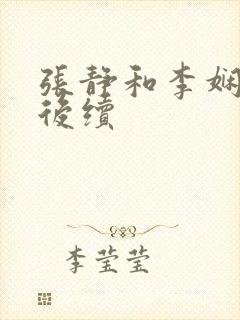 張静和李娴
後續
李莹莹